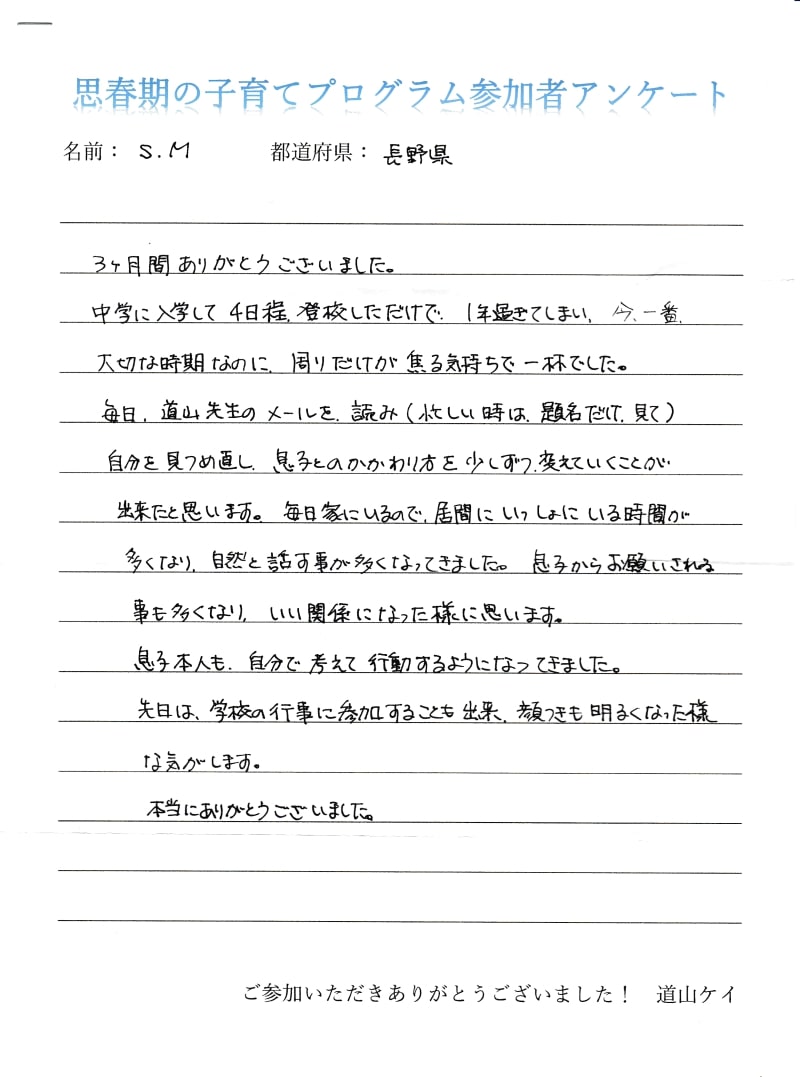 思春期の子育てプログラム参加者アンケート
名前： S.M 都道府県： 長野県
3ヶ月間ありがとうございました。
中学に入学して 4日程、登校しただけで、1年過ぎてしまい、今、一番、
大切な時期なのに、周りだけが焦る気持ちで一杯でした。
毎日、道山先生のメールを、読み（忙しい時は、題名だけ、見て）
自分を見つめ直し、息子とのかかわり方を少しずつ、変えていくことが
出来たと思います。毎日家にいるので、居間にいっしょにいる時間が
多くなり、自然と話す事が多くなってきました。息子からお願いされる
事も多くなり、いい関係になった様に思います。
息子本人も、自分で考えて行動するようになってきました。
先日は、学校の行事に参加することも出来、顔つきも明るくなった様
な気がします。
本当にありがとうございました。
ご参加いただきありがとうございました！ 道山ケイ